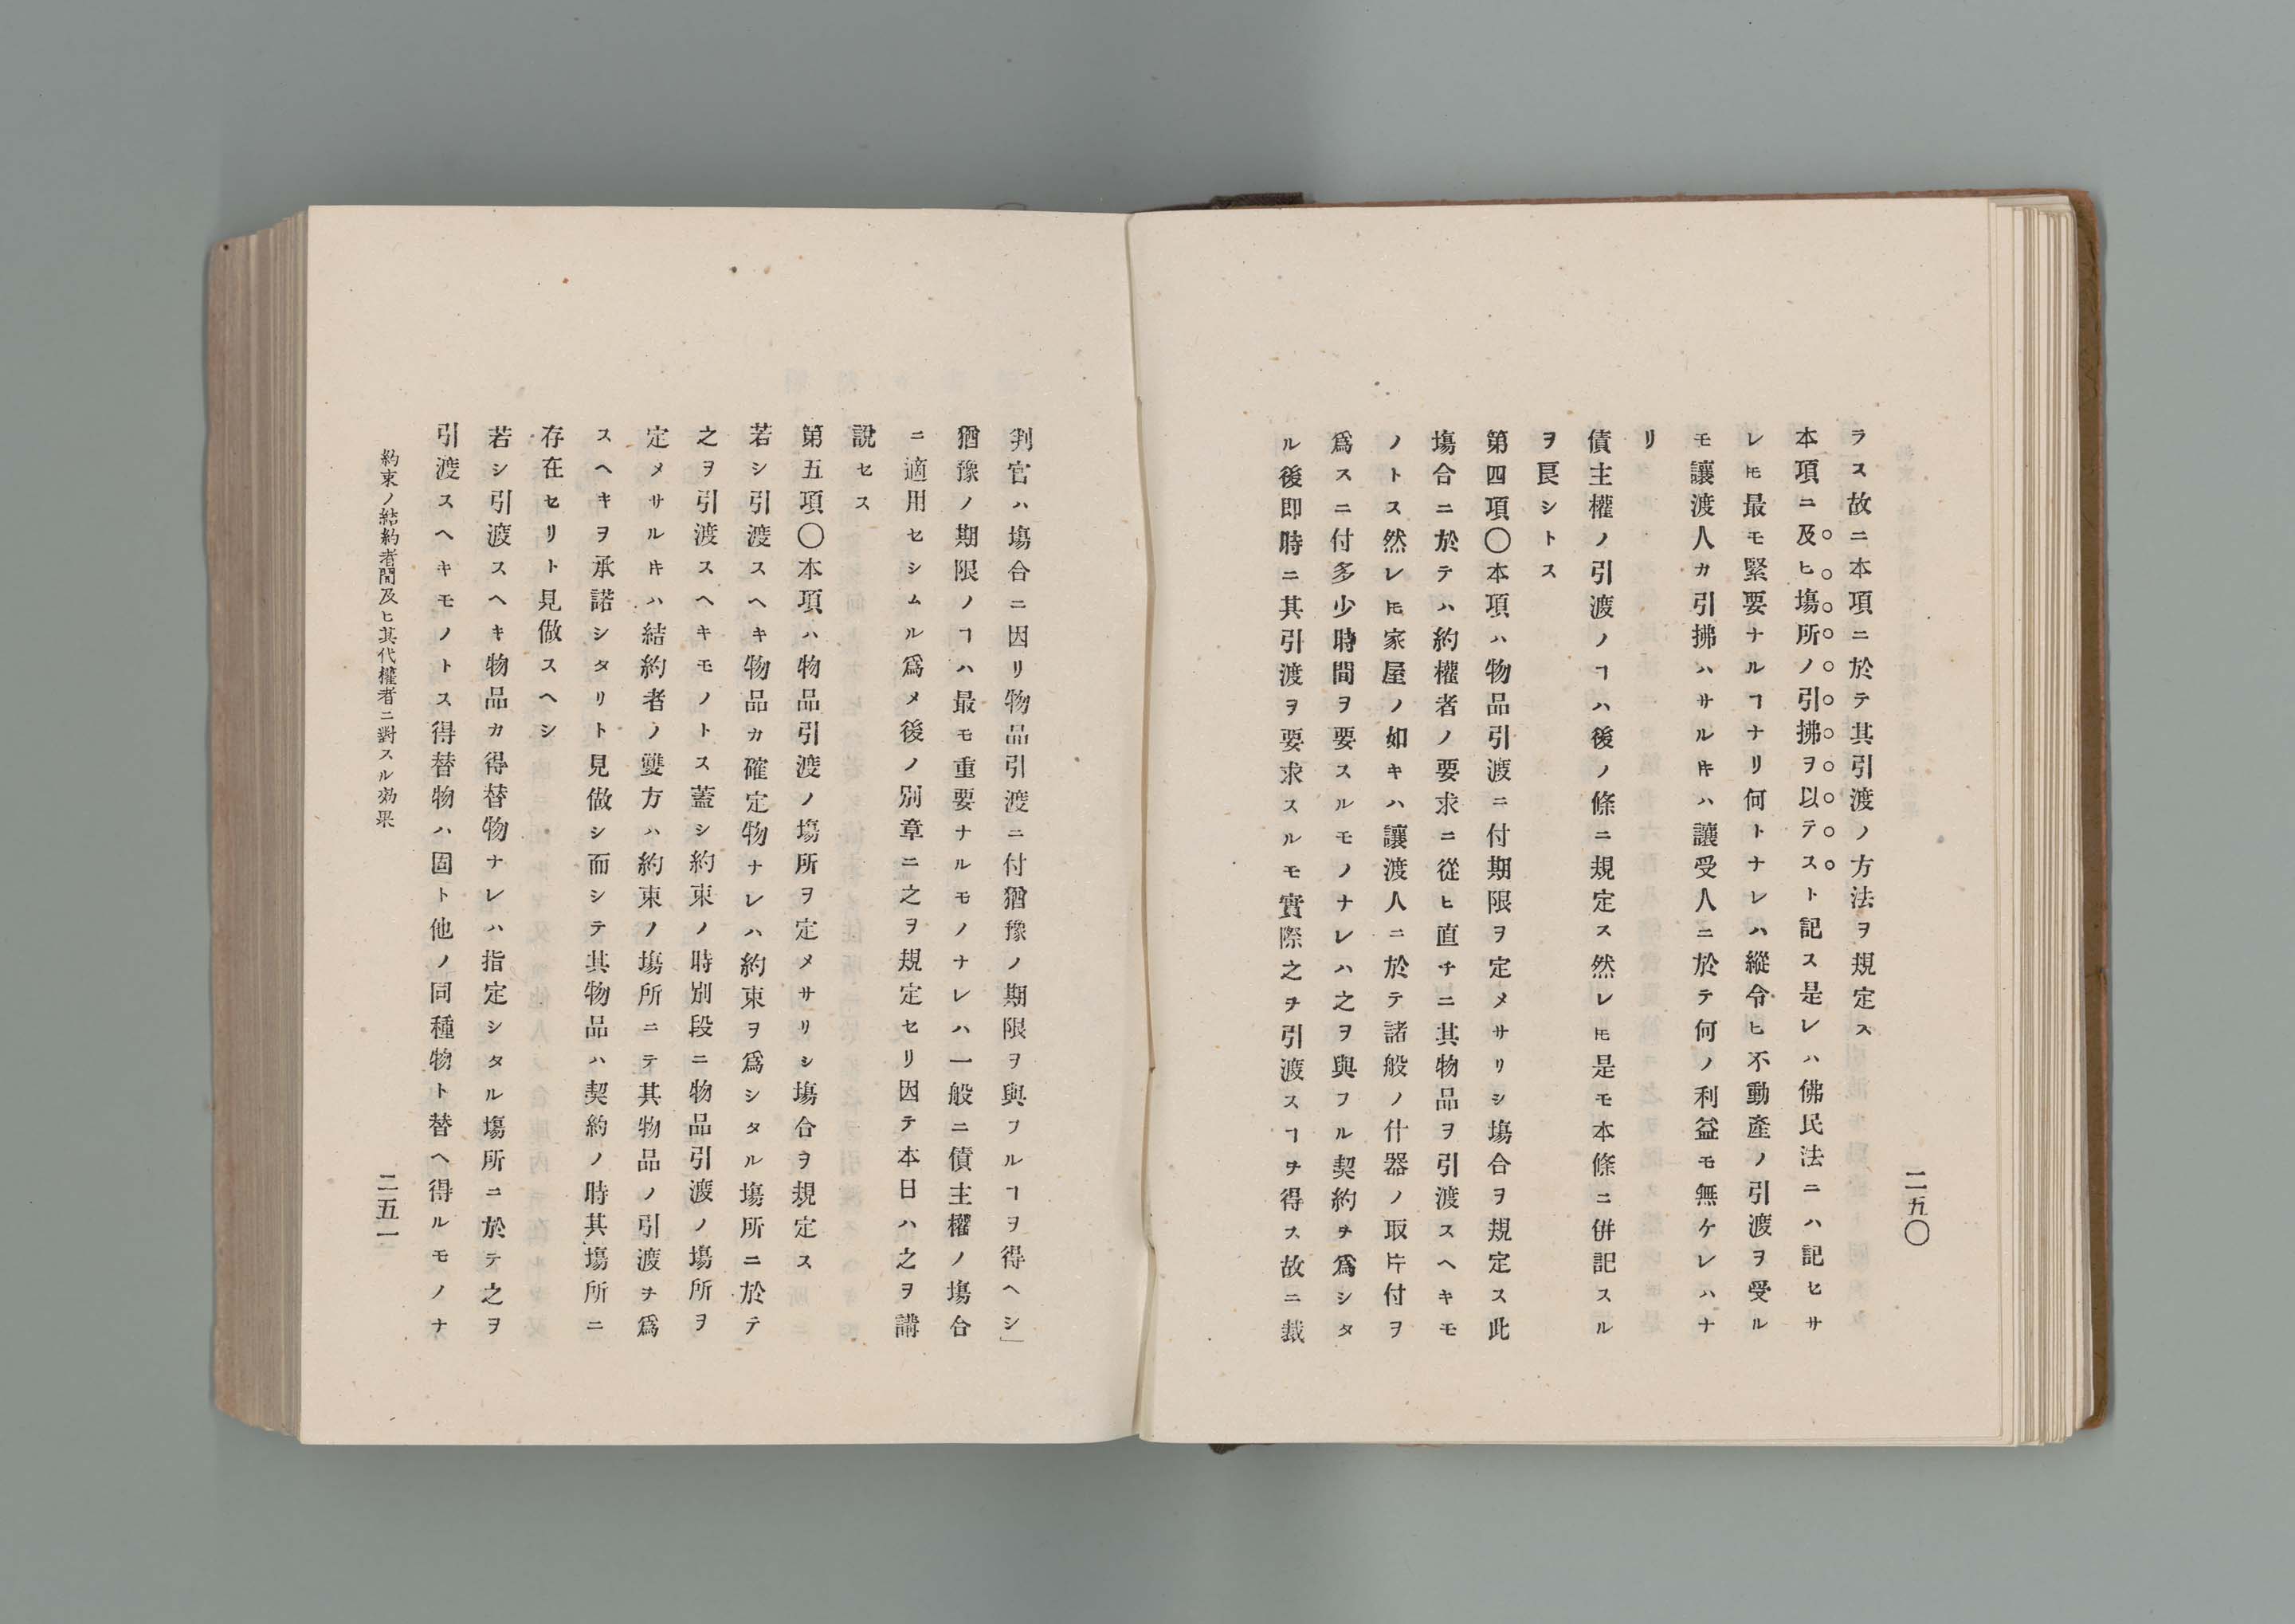 二五〇
ラス故ニ本項ニ於テ其引渡ノ方法ヲ規定ス
本項ニ及ヒ塲所ノ引拂ヲ以テスト記ス是レハ佛民法ニハ記セサ
レ𪜈最モ緊要ナルヿナリ何トナレハ縱令ヒ不動產ノ引渡ヲ受ル
モ讓渡人カ引拂ハサル𪜈ハ讓受人ニ於テ何ノ利益モ無ケレハナ
リ
債主權ノ引渡ノヿハ後ノ條ニ規定ス然レ𪜈是モ本條ニ併記スル
ヲ良シトス
第四項〇本項ハ物品引渡ニ付期限ヲ定メサリシ塲合ヲ規定ス此
塲合ニ於テハ約權者ノ要求ニ從ヒ直チニ其物品ヲ引渡スヘキモ
ノトス然レ𪜈家屋ノ如キハ讓渡人ニ於テ諸般ノ什器ノ取片付ヲ
爲スニ付多少時間ヲ要スルモノナレハ之ヲ與フル契約ヲ爲シタ
ル後即時ニ其引渡ヲ要求スルモ實際之ヲ引渡スヿヲ得ス故ニ裁
判官ハ塲合ニ因リ物品引渡ニ付猶豫ノ期限ヲ與フルヿヲ得ヘシ」
猶豫ノ期限ノヿハ最モ重要ナルモノナレハ一般ニ債主權ノ塲合
ニ適用セシムル爲メ後ノ別章ニ之ヲ規定セリ因テ本日ハ之ヲ講
說セス
第五項〇本項ハ物品引渡ノ塲所ヲ定メサリシ塲合ヲ規定ス
若シ引渡スヘキ物品カ確定物ナレハ約束ヲ爲シタル塲所ニ於テ
之ヲ引渡スヘキモノトス蓋シ約束ノ時別段ニ物品引渡ノ塲所ヲ
定メサルキハ結約者ノ雙方ハ約束ノ塲所ニテ其物品ノ引渡ヲ爲
スヘキヲ承諾シタリト見做シ而シテ其物品ハ契約ノ時其塲所ニ
存在セリト見做スヘシ
若シ引渡スヘキ物品カ得替物ナレハ指定シタル塲所ニ於テ之ヲ
引渡スヘキモノトス得替物ハ固ト他ノ同種物ト替ヘ得ルモノナ
約束ノ結約者間及ヒ其代權者ニ對スル効果
二五一